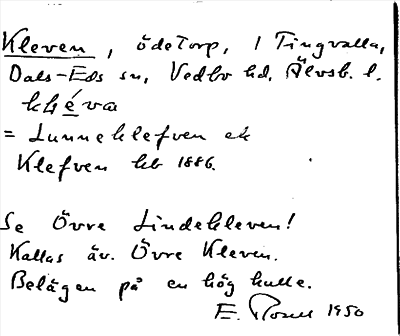 Kleven, ödetorp, i Tingvalla,
Dals-Eds sn, Vedbo hd, Älvsb. l.
kléva
= Lunneklefven ek
Klefven hb 1886.
Se Övre Lindekleven!
Kallas äv. Övre Kleven.
Belägen på en hög kulle.
E. 1950